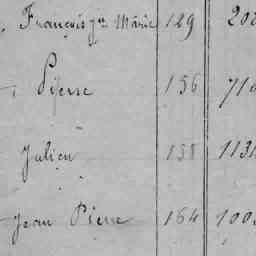 François Jn Marie 129 202
Pierre 156 716
Julien 158 1131
Jean Pierre 164 1003